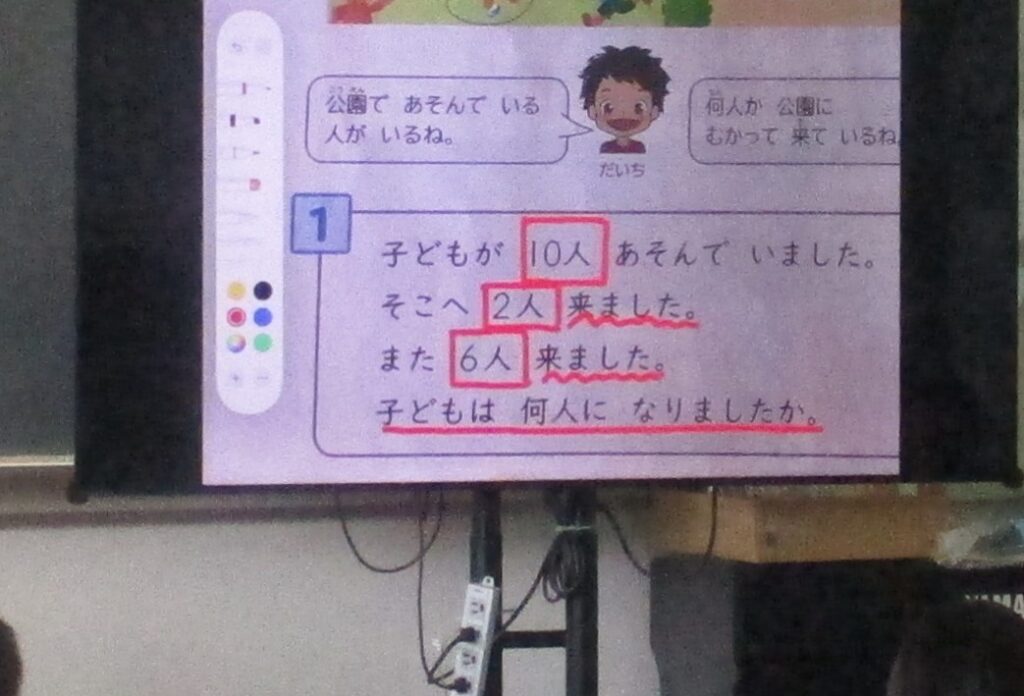 公園で あそんで いる
人が いるね。
だいち
何人か 公園に
むかって 来て いるね
1
子どもが 10人 あそんで いました。
そこへ 2人 来ました。
また 6人 来ました。
子どもは 何人に なりましたか。